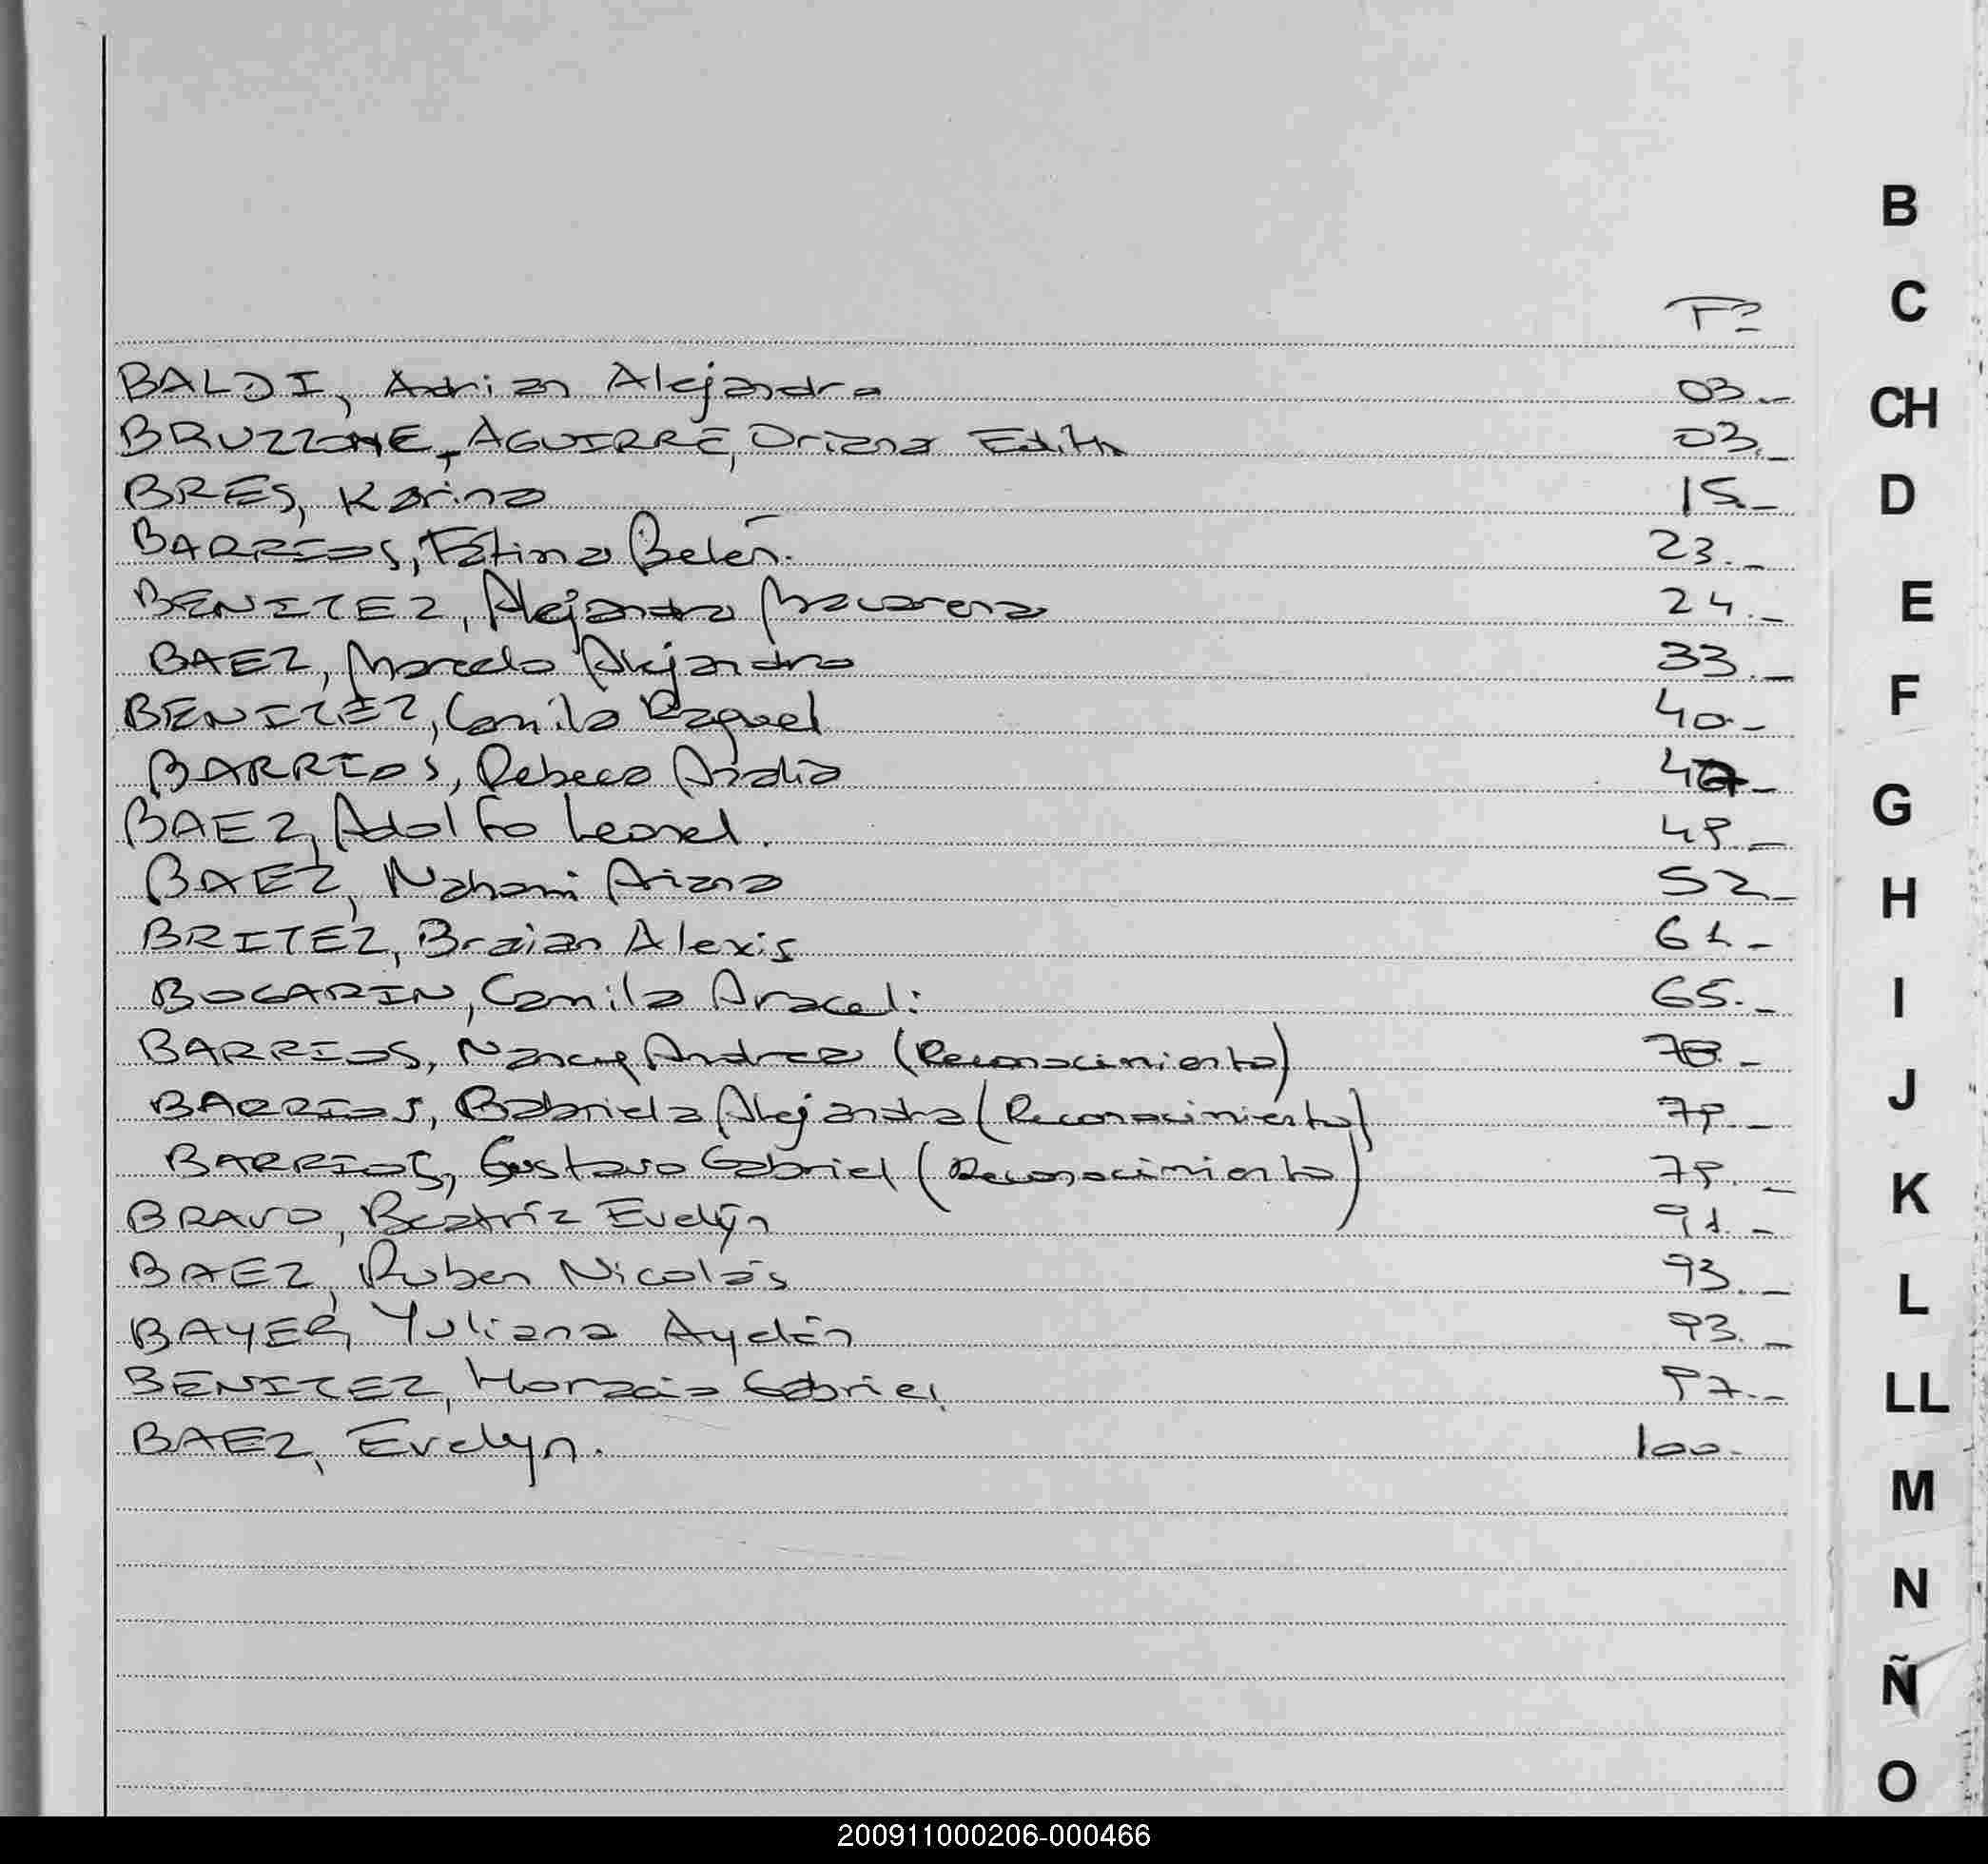 Fº
BALDI, Adrian Alejandro 03.-
BRUZZONE, AGUIRRE, Oriana Edith 03.-
BRES, Karina 15.-
BARRIOS, Fátima Belén. 23.-
BENITEZ, Alejandra Macarena 24.-
BAEZ, Marcelo Alejandro 33.-
BENITEZ, Camila Raquel 40.-
BARRIOS, Rebeca 47.-
BAEZ, Adolfo Leonel. 49.-
BAEZ, Nahomi Ariana 52.-
BRITEZ, Braian Alexis 61.-
BOGARIN, Camila Araceli 65.-
BARRIOS, Nancy Andrea (Reconocimiento) 78.-
BARRIOS, Gabriela Alejandra (Reconocimiento) 79.-
BARRIOS, Gustavo Gabriel (Reconocimiento) 79.-
BRAVO, Beatríz Evelyn 91.-
BAEZ, Ruben Nicolás 93.-
BAYER, Yuliana Aydén 93.-
BENITEZ, Horacio Gabriel 97.-
BAEZ, Evelyn. 100.-
B
C
CH
D
E
F
G
H
I
J
K
L
LL
M
N
Ñ
O
200911000206-000466